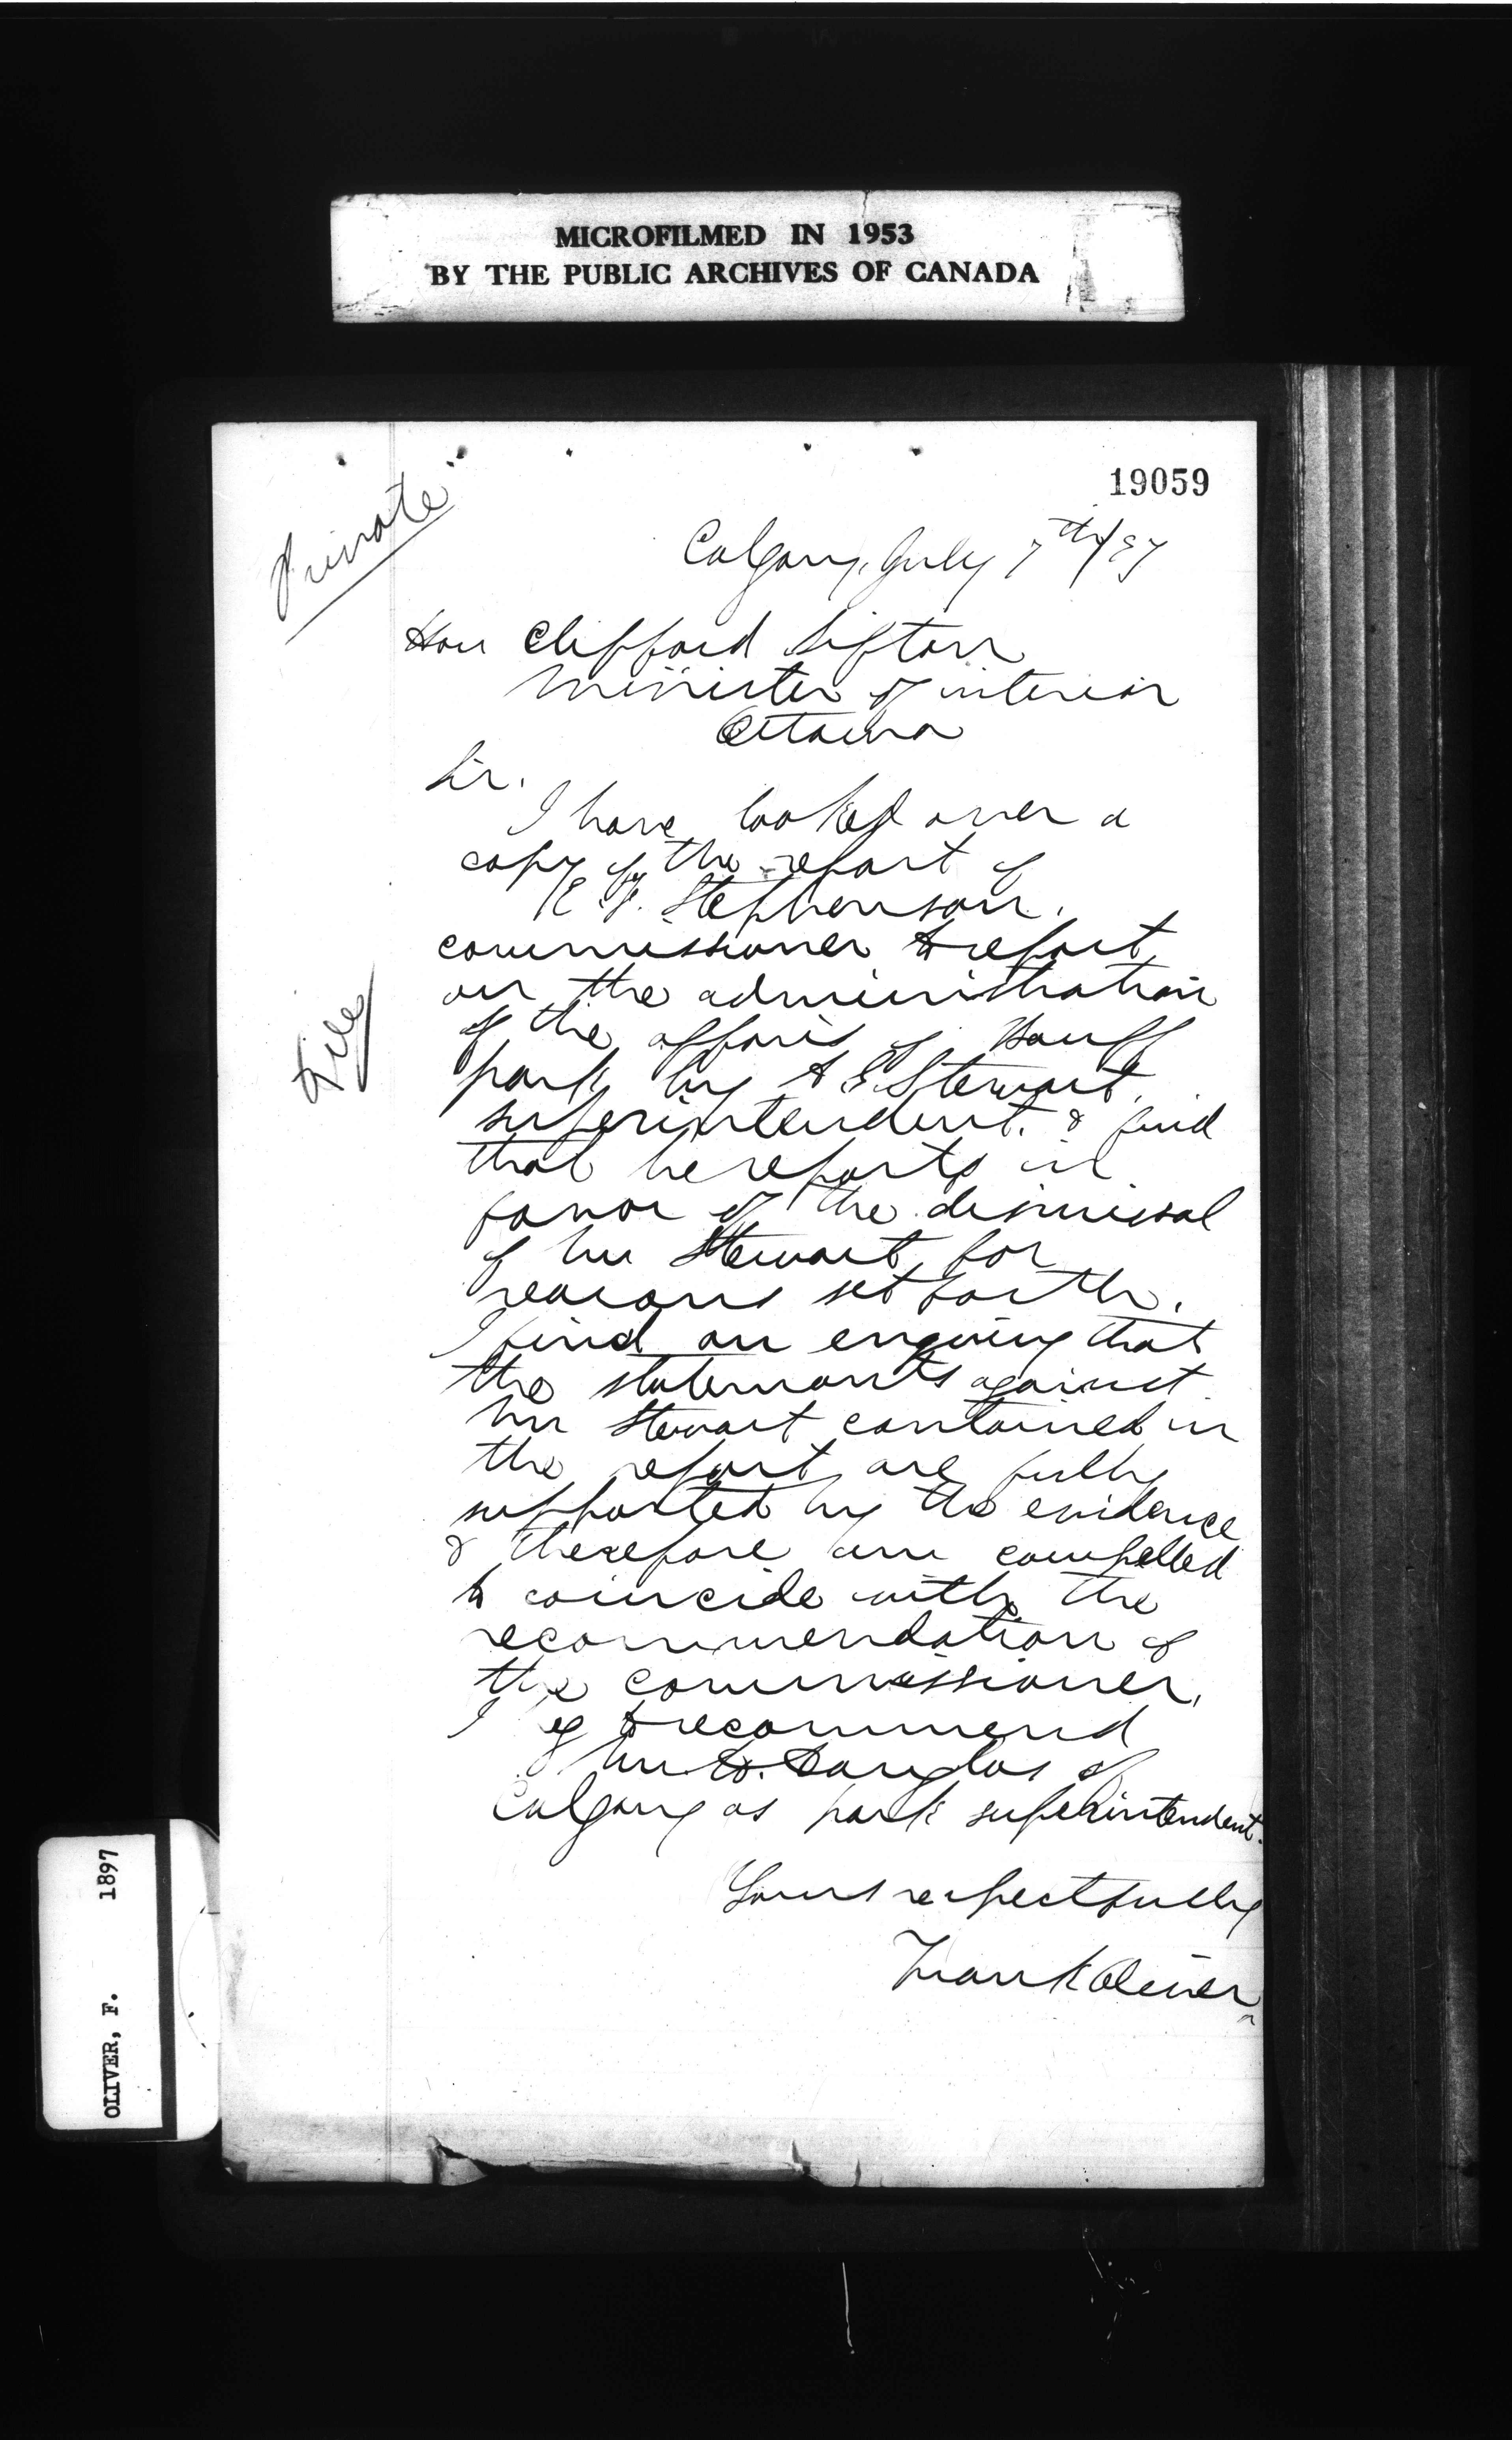 MICROFILMED IN 1953
BY THE PUBLIC ARCHIVES OF CANADA
19059
Private
Calgary, July 7th/97
Hon Clifford Sifton
Minister of interior
Ottawa
Sir.
I have looked over a
copy of the report of
E. F. Stephenson,
commissioner to report
on the administration
of the affairs of Banff
park by A E Stewart,
superintendent. & find
that he reports in
favor of the dismissal
of Mr Stewart for
reasons set forth.
I find on enquiry that
the statements against
Mr Stewart contained in
the report are fully
supported by the evidence
& therefore am compelled
to coincide with the
recommendation of
the commissioner.
I beg to recommend
Mr H. Douglas of
Calgary as park superintendent.
Yours respectfully
Frank Oliver
File
OLIVER, F. 1897